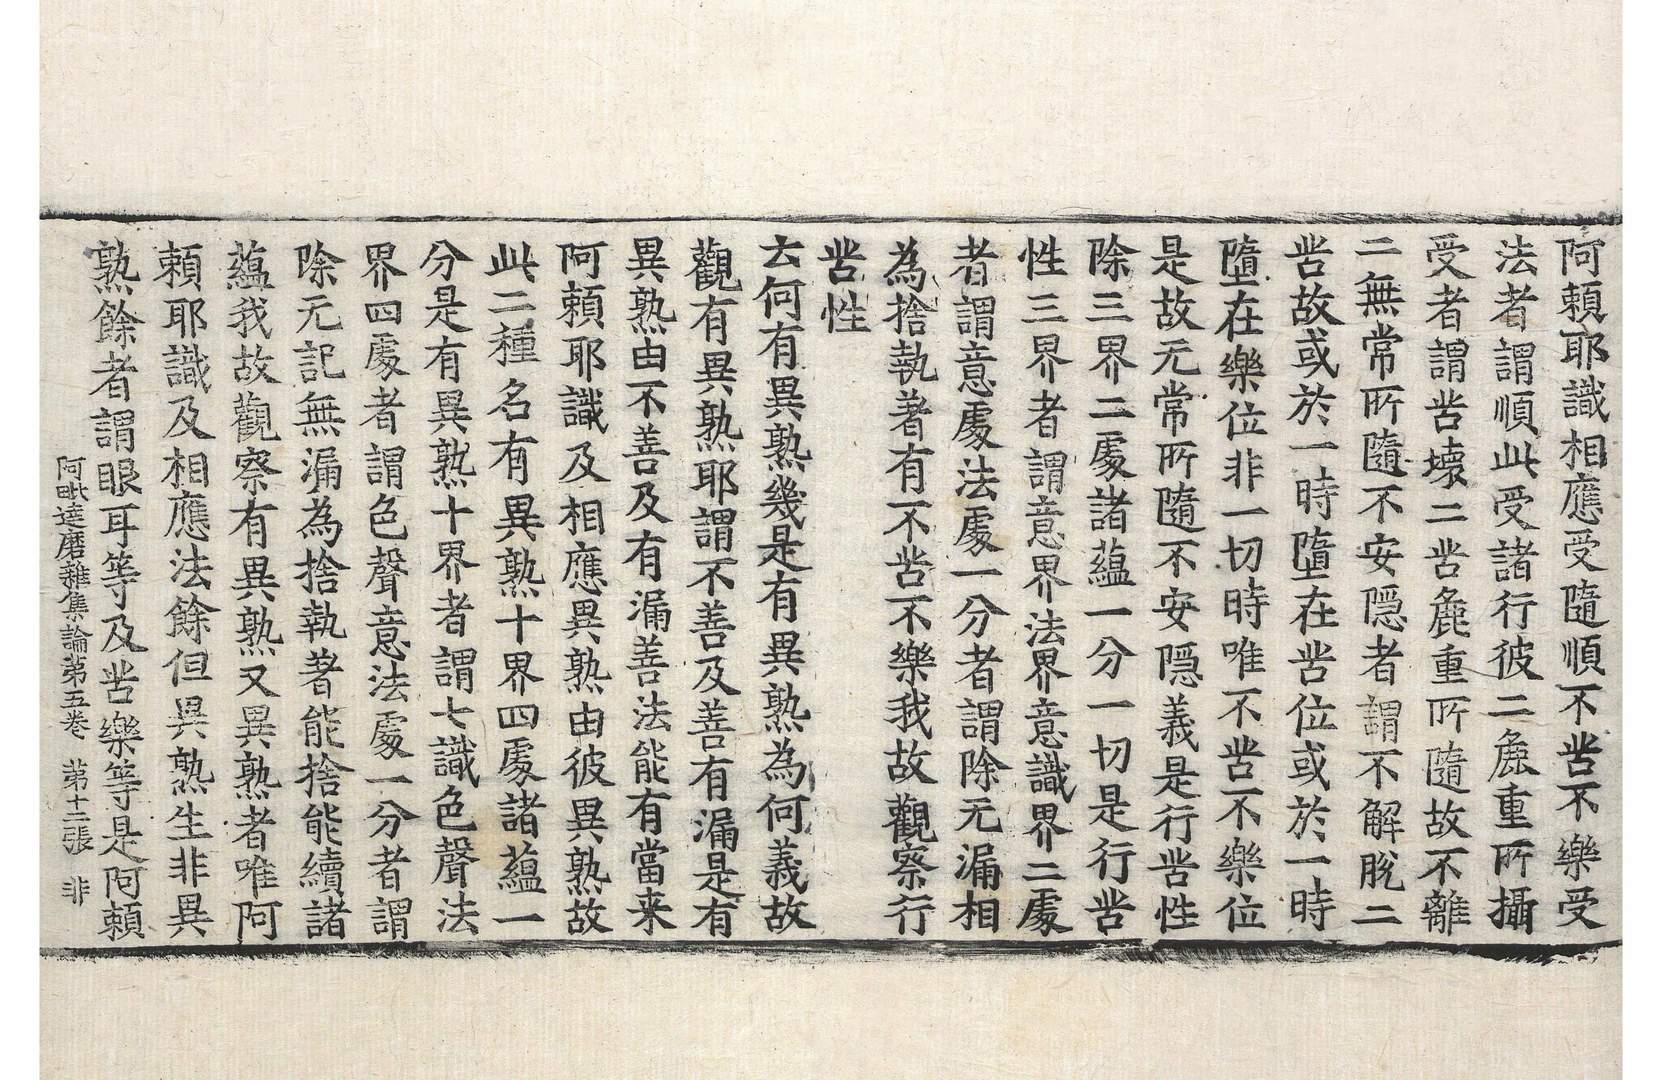 阿頼耶識相應受隨順不苦不樂受
法者謂順此受諸行彼二麁重所攝
受者謂苦壞二苦麁重所隨故不離
二無常所隨不安隱者謂不解脫二
苦故或於一時墮在苦位或於一時
墮在樂位非一切時唯不苦不樂位
是故无常所隨不安隱義是行苦性
除三界二處諸蘊一分一切是行苦
性三界者謂意界法界意識界二處
者謂意處法處一分者謂除无漏相
為捨執著有不苦不樂我故觀察行
苦性
云何有異熟幾是有異熟為何義故
觀有異熟耶謂不善及善有漏是有
異熟由不善及有漏善法能有當来
阿頼耶識及相應異熟由彼異熟故
此二種名有異熟十界四處諸蘊一
分是有異熟十界者謂七識色聲法
界四處者謂色聲意法處一分者謂
除无記無漏為捨執著能捨能續諸
蘊我故觀察有異熟又異熟者唯阿
頼耶識及相應法餘但異熟生非異
熟餘者謂眼耳等及苦樂等是阿頼
阿毗達磨雜集論第五卷 第十二張 非